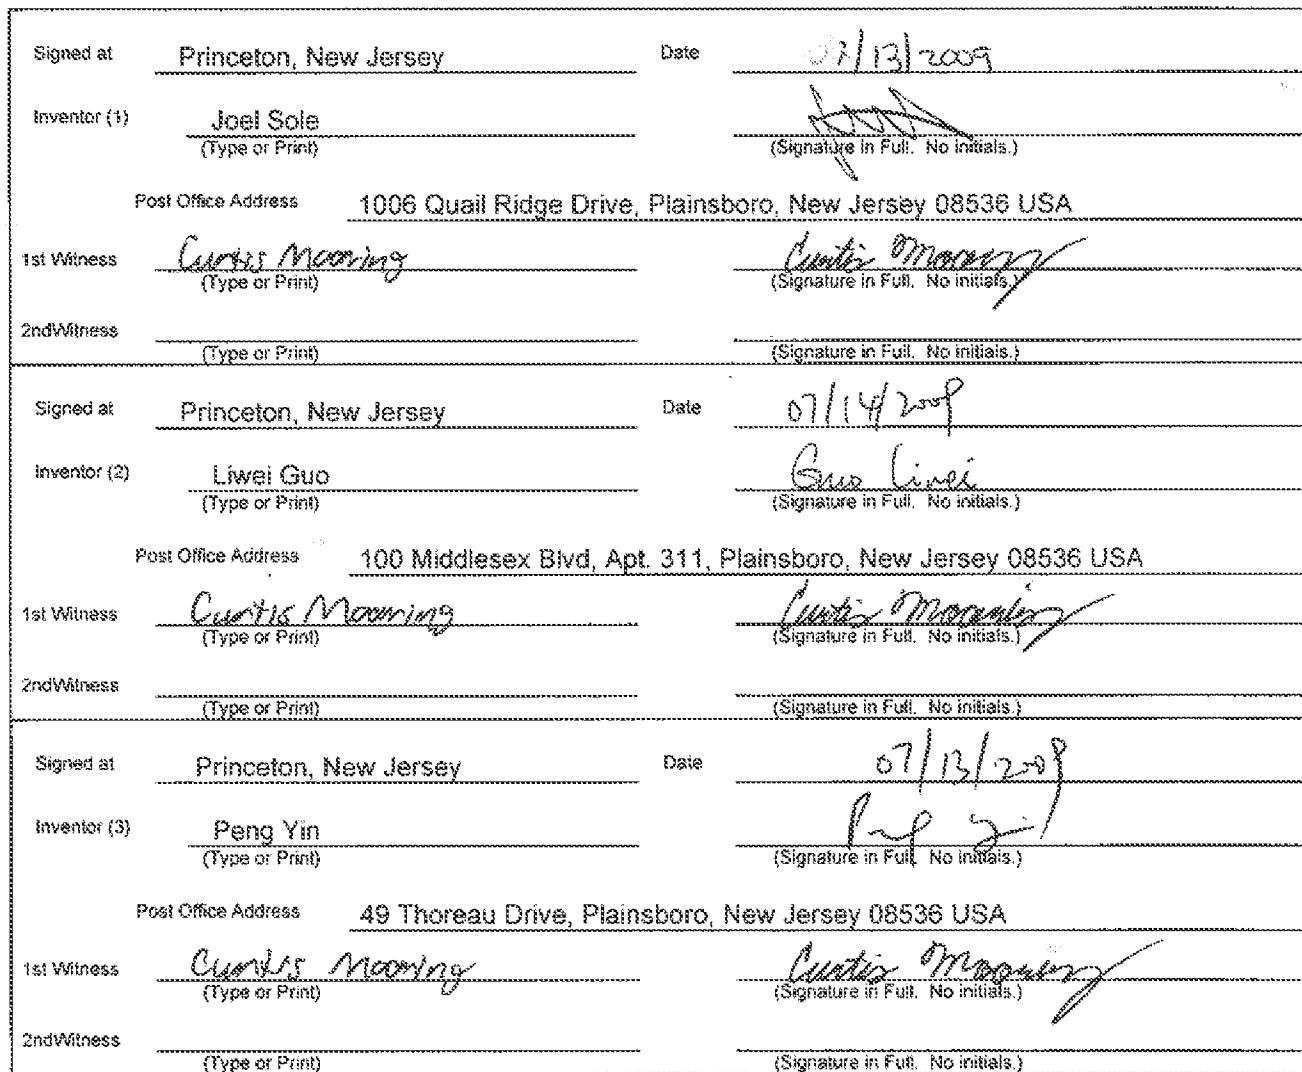 Signed at Princeton, New Jersey Date 07/13/2009
Inventor (1) Joel Sole
(Type or Print) (Signature in Full. No initials.)
Post Office Address 1006 Quail Ridge Drive, Plainsboro, New Jersey 08536 USA
1st Witness Curtis Mooring Curtis Mooring
(Type or Print) (Signature in Full. No initials.)
2ndWitness
(Type or Print) (Signature in Full. No initials.)
Signed at Princeton, New Jersey Date 07/14/2009
Inventor (2) Liwei Guo Guo Liwei
(Type or Print) (Signature in Full. No initials.)
Post Office Address 100 Middlesex Blvd, Apt. 311, Plainsboro, New Jersey 08536 USA
1st Witness Curtis Mooring Curtis Mooring
(Type or Print) (Signature in Full. No initials.)
2ndWitness
(Type or Print) (Signature in Full. No initials.)
Signed at Princeton, New Jersey Date 07/13/2009
Inventor (3) Peng Yin Peng Yin
(Type or Print) (Signature in Full. No initials.)
Post Office Address 49 Thoreau Drive, Plainsboro, New Jersey 08536 USA
1st Witness Curtis Mooring Curtis Mooring
(Type or Print) (Signature in Full. No initials.)
2ndWitness
(Type or Print) (Signature in Full. No initials.)